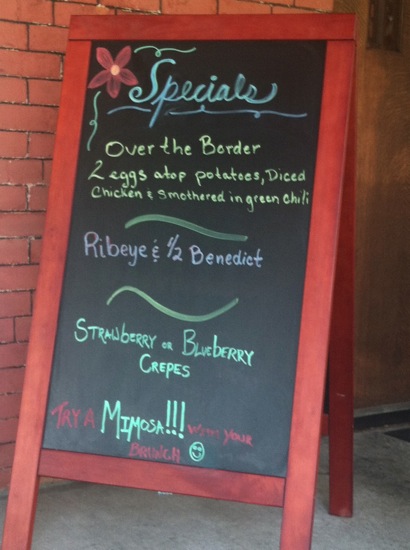 Specials
Over the Border
2 eggs atop potatoes, Diced
Chicken & Smothered in green Chili
Ribeye & 1/2 Benedict
Strawberry or Blueberry
Crepes
Try a Mimosa!!! with your
Brunch